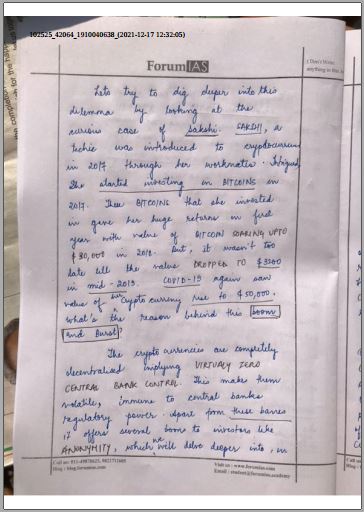 102525_42064_1910040638_(2021-12-17 12:32:05)
ForumIAS
(Don't Write
anything in this
Lets try to dig deeper into this
dilemma by looking at the
curious case of Sakshi. SAKSHI, a
techie was introduced to cryptocurrency
in 2017 through her workmates. Intrigued,
She started investing in BITCOINS in
2017. These BITCOINS that she invested
in gave her huge returns on first
year with value of BITCOIN SOARING UPTO
$30,000 in 2018. But, it wasn't too
late till the value DROPPED TO $3300
in mid-2019. COVID-19 again saw
value of her Crypto currency rise to $50,000.
what's the reason behind this boom
and Burst?
The crypto currencies are completely
decentralised implying VIRTUALY ZERO
CENTRAL BANK CONTROL. This makes them
volatile, immune to central banks
regulatory power. Apart from these banes
it offers several boons to investors like
ANONYMITY, which we will delve deeper into, in
Call us: 011-49878625, 9821711605
Blog : blog.forumias.com
Visit us : www.forumias.com
Email : student@forumias.academy